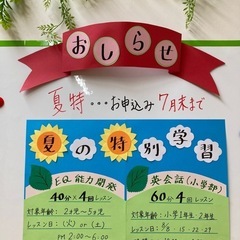 おしらせ
夏特…お申込み 7月末まで
夏の特別学習
EQ能力開発
40分×4回レッスン
対象年齢：2才児〜5才児
レッスン日：(火) or (土)
PM 2:00〜6:00
英会話(小学部)
60分4回レッスン
対象年齢：小学1年生・2年生
レッスン日：8/8・15・22・29